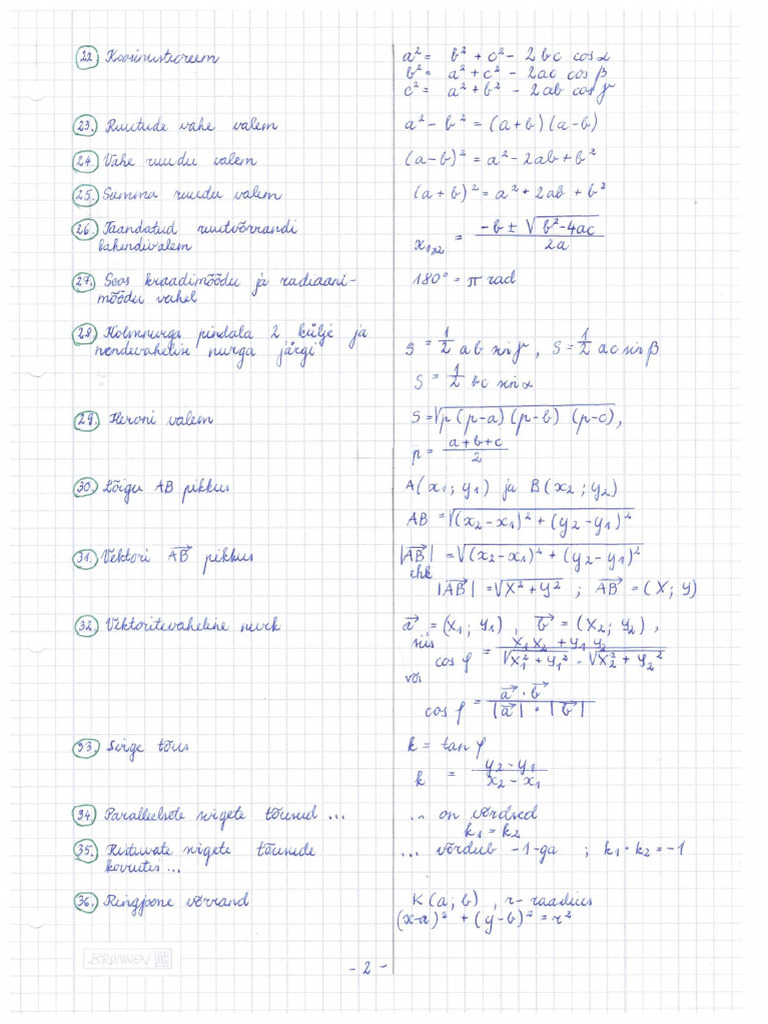 22. Koosinusteoreem
a² = b² + c² - 2bc cos α
b² = a² + c² - 2ac cos β
c² = a² + b² - 2ab cos γ
23. Ruutude vahe valem
a² - b² = (a+b)(a-b)
24. Vahe ruudu valem
(a-b)² = a² - 2ab + b²
25. Summa ruudu valem
(a+b)² = a² + 2ab + b²
26. Taandatud ruutvõrrandi
lahendivalem
x₁,₂ = (-b ± √(b²-4ac))/(2a)
27. Seos kraadimõõdu ja radiaani-
mõõdu vahel
180° = π rad
28. Kolmnurga pindala 2 külje ja
nendevahelise nurga järgi
S = 1/2 ab sin γ, S = 1/2 ac sin β
S = 1/2 bc sin α
29. Heroni valem
S = √(p(p-a)(p-b)(p-c)),
p = (a+b+c)/2
30. Lõigu AB pikkus
A(x₁; y₁) ja B(x₂; y₂)
AB = √((x₂-x₁)² + (y₂-y₁)²)
31. Vektori AB⃗ pikkus
|AB⃗| = √((x₂-x₁)² + (y₂-y₁)²)
ehk
|AB⃗| = √(X² + Y²) ; AB⃗ = (X; Y)
32. Vektoritevaheline nurk
a⃗ = (X₁; Y₁), b⃗ = (X₂; Y₂),
siis
cos φ = (X₁X₂ + Y₁Y₂)/(√(X₁² + Y₁²) · √(X₂² + Y₂²))
või
cos φ = (a⃗ · b⃗)/(|a⃗| · |b⃗|)
33. Sirge tõus
k = tan φ
k = (y₂-y₁)/(x₂-x₁)
34. Paralleelsete sirgete tõusud ...
... on võrdsed
k₁ = k₂
35. Ristuvate sirgete tõusude
korrutis ...
... võrdub -1-ga ; k₁ · k₂ = -1
36. Ringjoone võrrand
K(a; b), r - raadius
(x-a)² + (y-b)² = r²
BRUNNEN
- 2 -